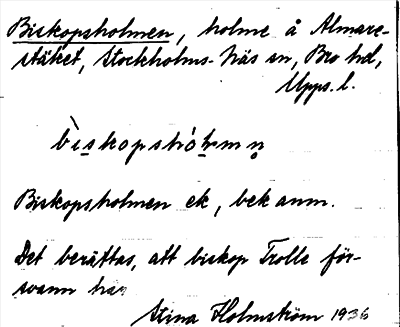 Biskopsholmen, holme å Almare-
stäket, Stockholms-Näs sn, Bro hd,
Upps. l.
bìskopshól̥mn̥
Biskopsholmen ek, bek anm.
Det berättas, att biskop Trolle för-
svann här
Stina Holmström 1936